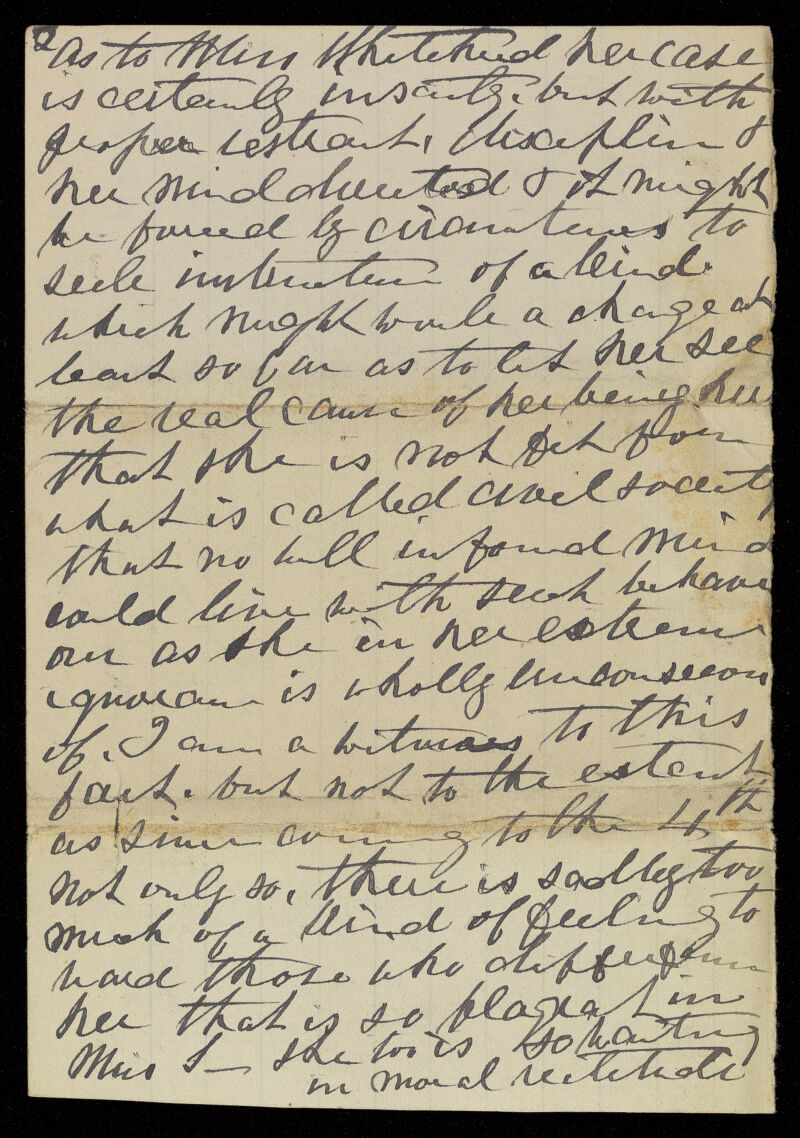 2
as to Miss Whitehead her case
is certainly insanity, but with
proper restraint, discipline &
her mind directed & it might
be forced by circumstances to
seek instruction of a kind
which might work a change at
least so far as to let her see
the real cause of her being here
that she is not fit for
what is called civil society
that no well informed mind
could live with such behavi
our as she in her extreme
ignorance is wholly unconscious
of. I am a witness to this
fact. but not to the extent
as since coming to the 4th
not only so, there is sadly too
much of a kind of feeling to
ward those who differ from
her that is so flagrant in
Miss S— she too is so wanting
in moral rectitude